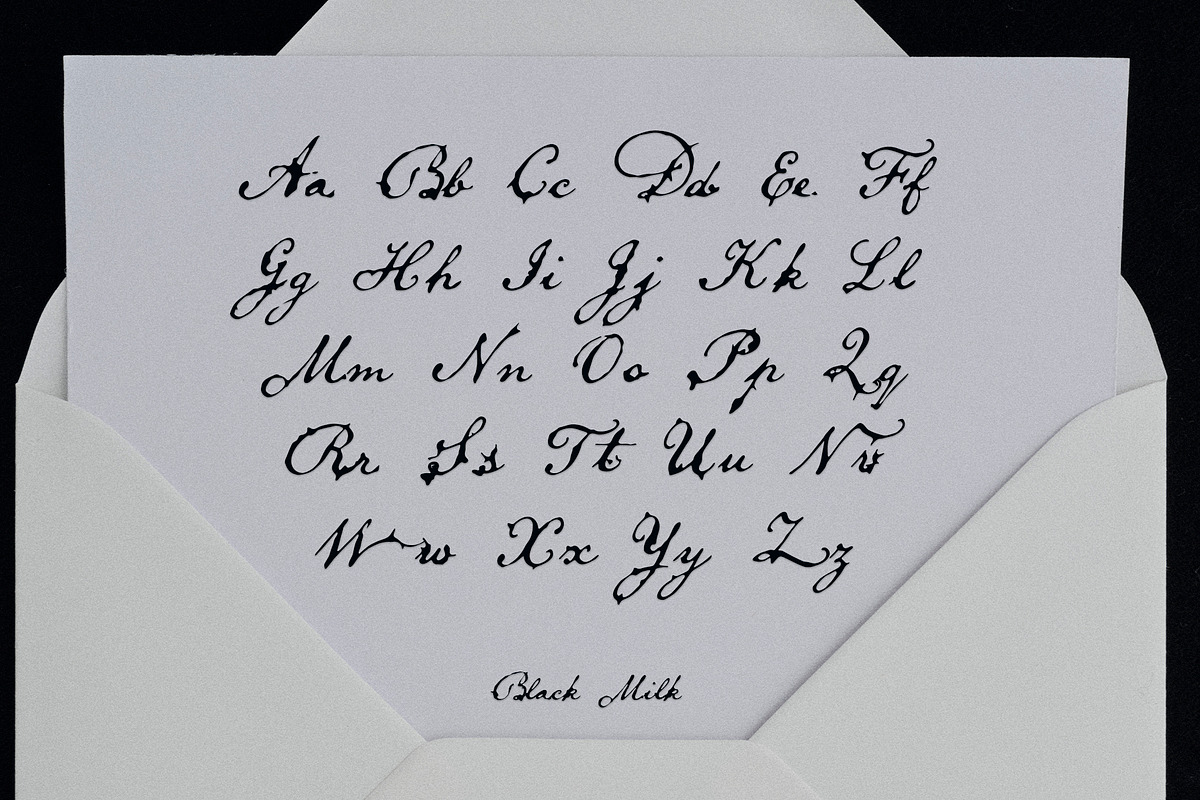 Aa Bb Cc Dd Ee Ff
Gg Hh Ii Jj Kk Ll
Mm Nn Oo Pp Qq
Rr Ss Tt Uu Vv
Ww Xx Yy Zz
Black Milk